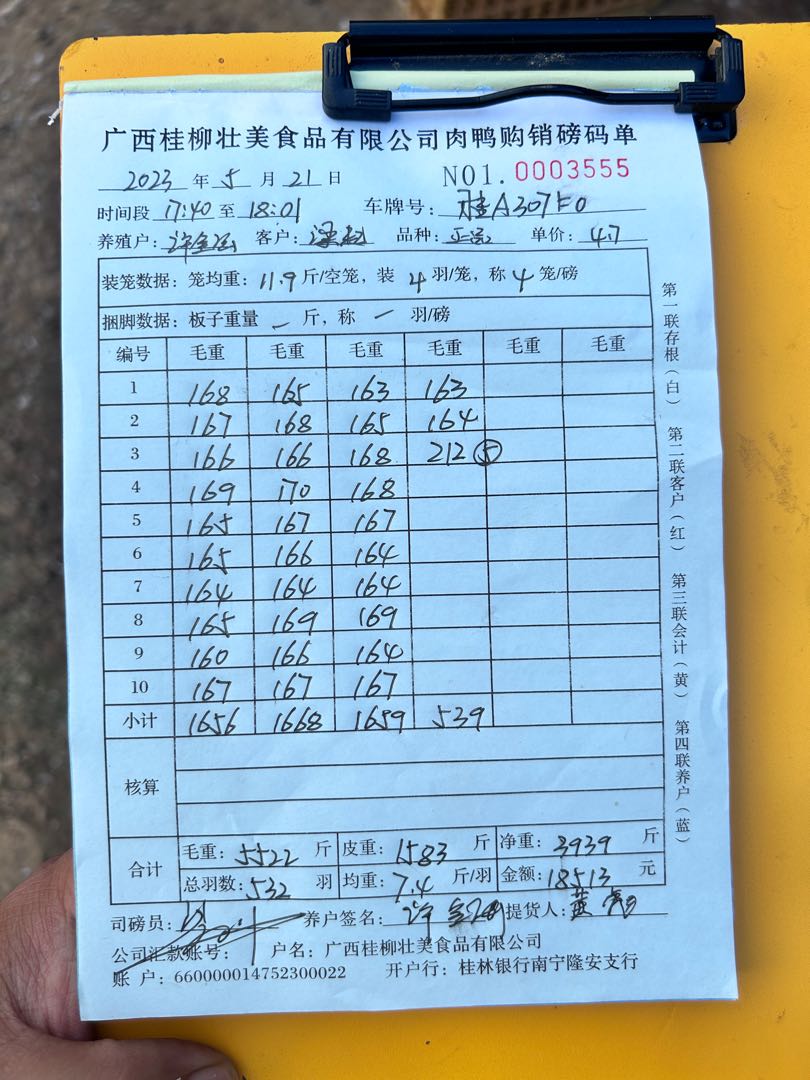 广西桂柳壮美食品有限公司肉鸭购销磅码单
2023 年 5 月 21 日 NO1. 0003555
时间段 17:40 至 18:01 车牌号: 桂A307F0
养殖户: 客户: 品种: 单价: 4.7
装笼数据: 笼均重: 11.9 斤/空笼, 装 4 羽/笼, 称 4 笼/磅
捆脚数据: 板子重量 一 斤, 称 一 羽/磅
编号 毛重 毛重 毛重 毛重 毛重 毛重
1 168 165 163 163
2 167 168 165 164
3 166 166 168 212 ⑤
4 169 170 168
5 165 167 167
6 165 166 164
7 164 164 164
8 165 169 169
9 160 166 164
10 167 167 167
小计 1656 1668 1659 539
核算
合计 毛重: 5522 斤 皮重: 1583 斤 净重: 3939 斤
总羽数: 532 羽 均重: 7.4 斤/羽 金额: 18513 元
司磅员: 养户签名: 许 提货人: 黄
公司汇款账号: 户名: 广西桂柳壮美食品有限公司
账 户: 660000014752300022 开户行: 桂林银行南宁隆安支行
第一联存根(白) 第二联客户(红) 第三联会计(黄) 第四联养户(蓝)